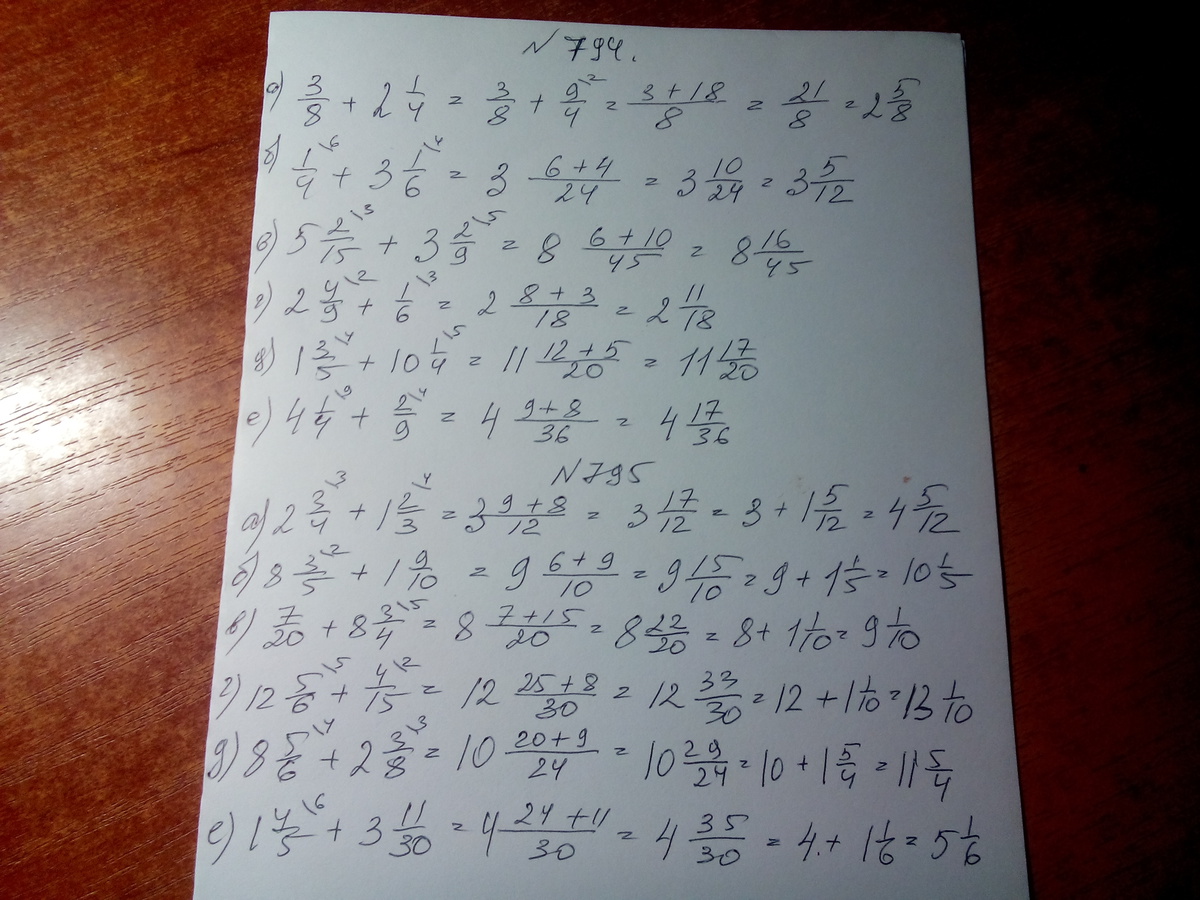 №794.
а) 3/8 + 2 1/4 = 3/8 + 9/4 \2 = (3+18)/8 = 21/8 = 2 5/8
б) 1/4 \6 + 3 1/6 \4 = 3 (6+4)/24 = 3 10/24 = 3 5/12
в) 5 2/15 \3 + 3 2/9 \5 = 8 (6+10)/45 = 8 16/45
г) 2 4/9 \2 + 1/6 \3 = 2 (8+3)/18 = 2 11/18
д) 1 3/5 \4 + 10 1/4 \5 = 11 (12+5)/20 = 11 17/20
е) 4 1/4 \9 + 2/9 \4 = 4 (9+8)/36 = 4 17/36
№795
а) 2 3/4 \3 + 1 2/3 \4 = 3 (9+8)/12 = 3 17/12 = 3 + 1 5/12 = 4 5/12
б) 8 3/5 \2 + 1 9/10 = 9 (6+9)/10 = 9 15/10 = 9 + 1 1/5 = 10 1/5
в) 7/20 + 8 3/4 \5 = 8 (7+15)/20 = 8 22/20 = 8 + 1 1/10 = 9 1/10
г) 12 5/6 \5 + 4/15 \2 = 12 (25+8)/30 = 12 33/30 = 12 + 1 1/10 = 13 1/10
д) 8 5/6 \4 + 2 3/8 \3 = 10 (20+9)/24 = 10 29/24 = 10 + 1 5/4 = 11 5/4
е) 1 4/5 \6 + 3 11/30 = 4 (24+11)/30 = 4 35/30 = 4. + 1 1/6 = 5 1/6